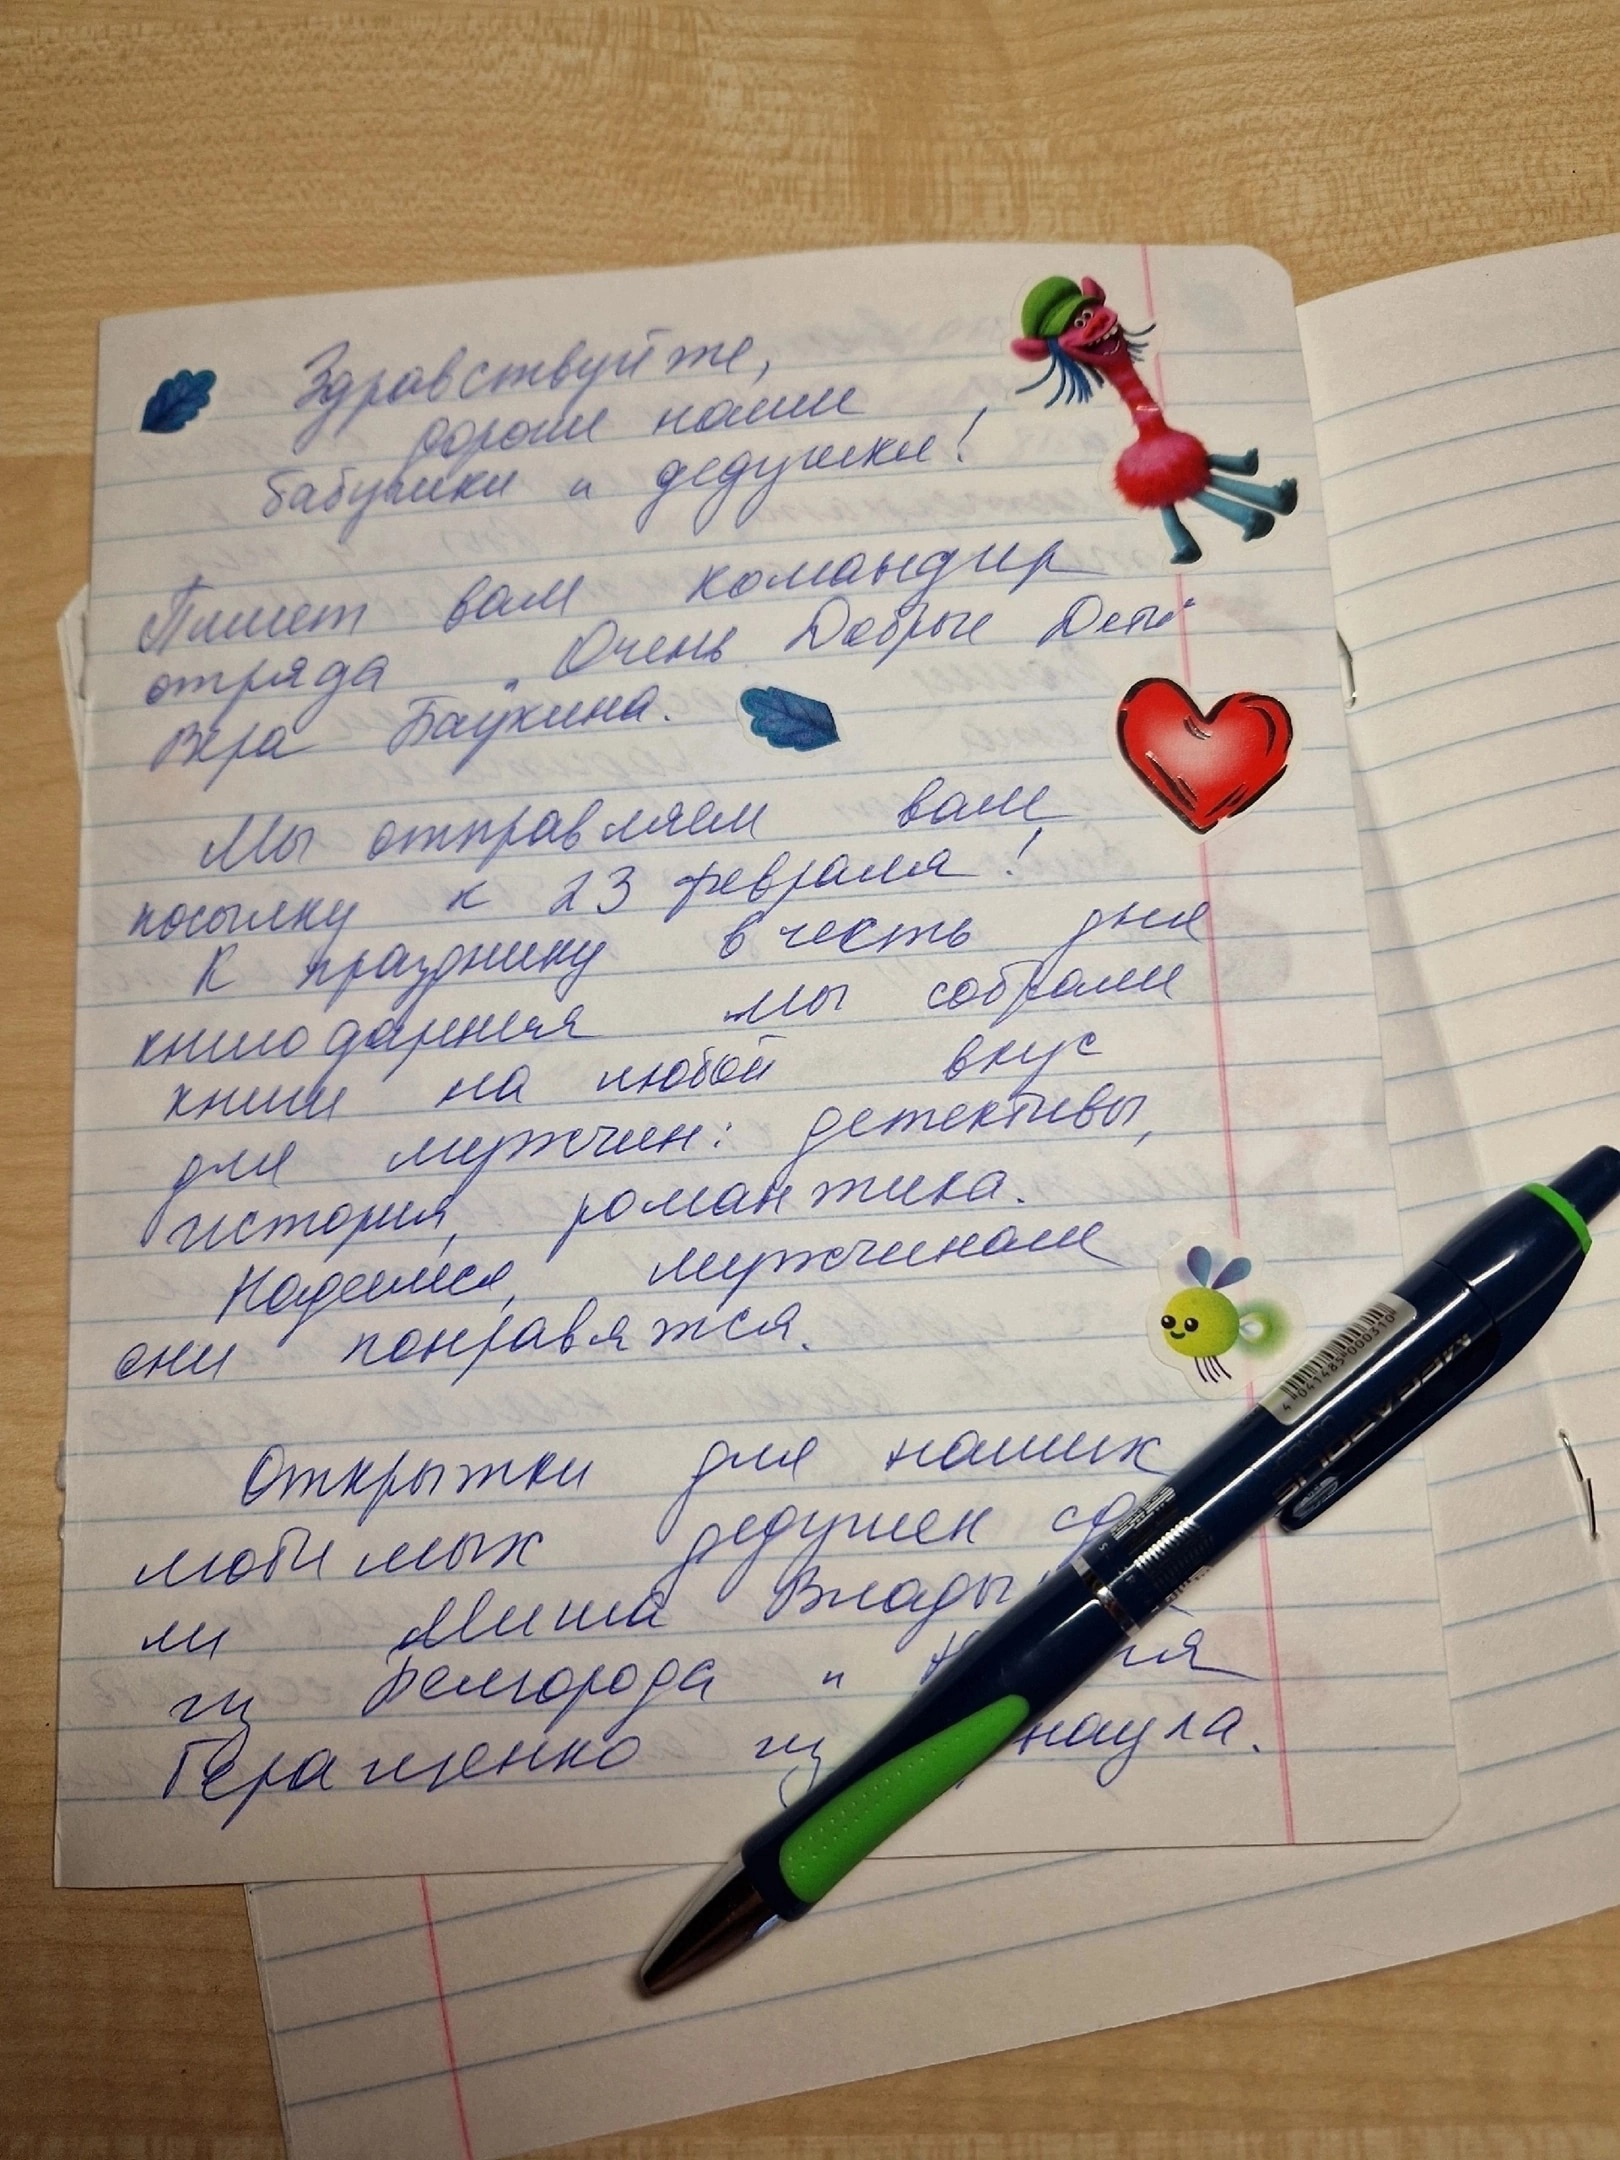 Здравствуйте,
дороги наши
бабушки и дедушки!
Пишет вам командир
отряда "Очень Добрые Дети"
Вера Баукина.
Мы отправляем вам
посылку к 23 февраля!
К празднику в честь дня
книгодарения мы собрали
книги на любой вкус
для мужчин: детективы,
история, романтика.
Надеемся, мужчинам
они понравятся.
Открытки для наших
любимых дедушек
ли Миша Влады
из Белгорода и
Геращенко из наула.
4 041485 000310